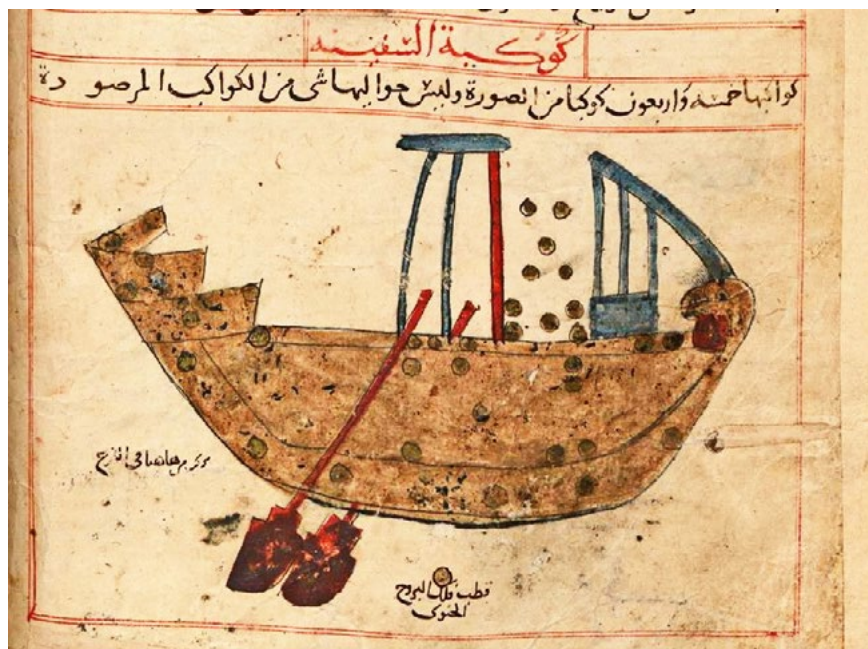 كوكبة السفينة
كواكبها خمسه واربعون كوكبا من الصورة وليس حواليها شى من الكواكب المرصودة
قطب فلك البروج
الجنوبى